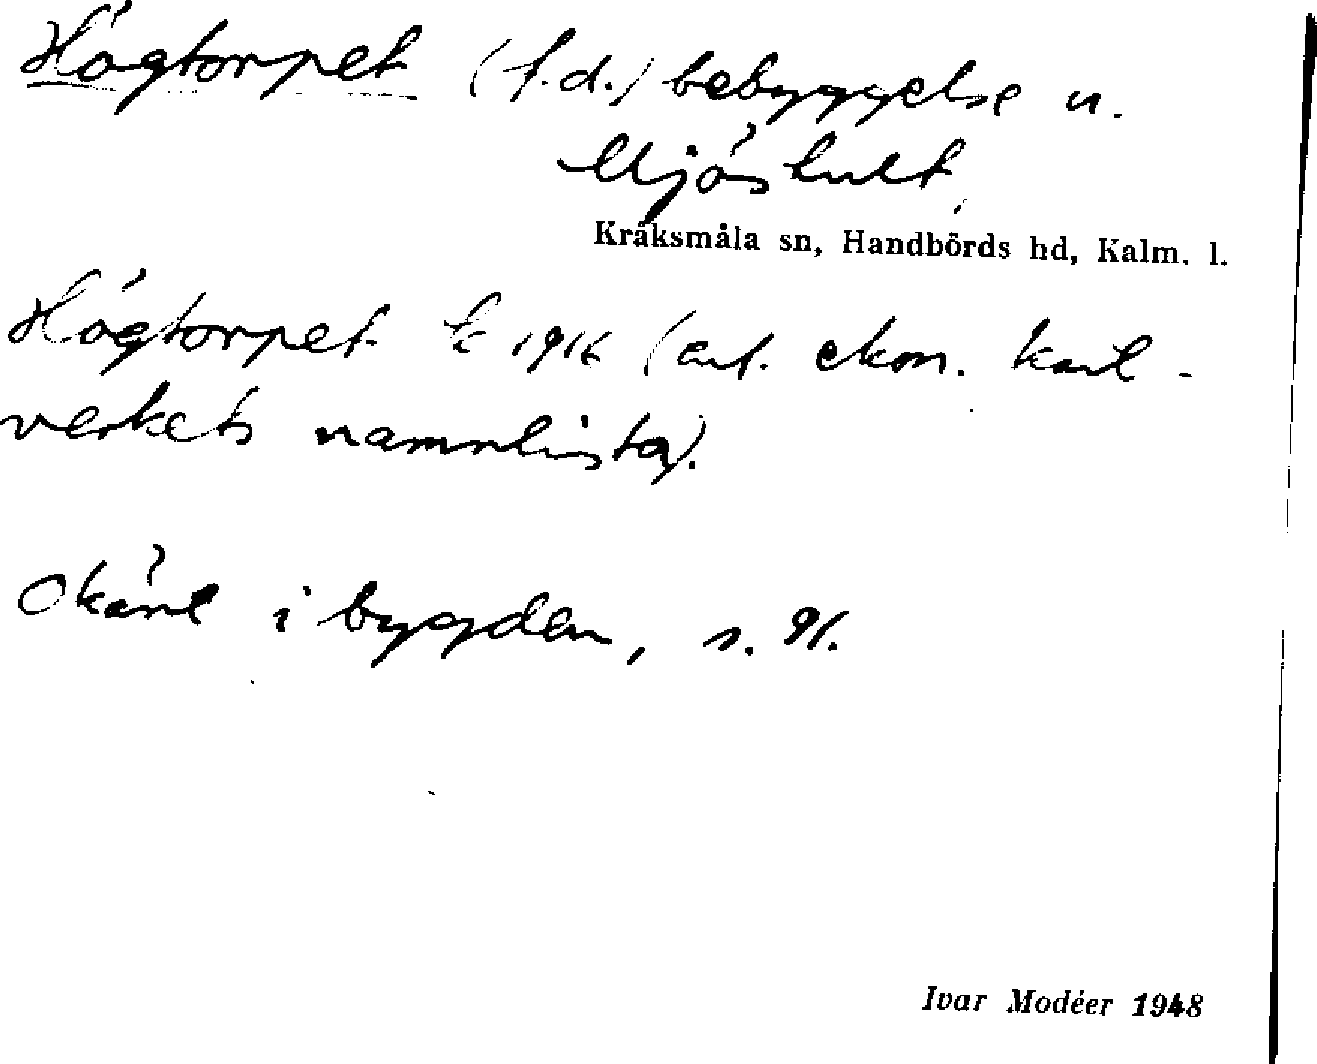 Högtorpet (f.d.) bebyggelse u.
Mjöshult,
Kråksmåla sn, Handbörds hd, Kalm. l.
Högtorpet Ek 1916 (enl. ekon. kart-
verkets namnlista).
Okänt i bygden, s. 91.
Ivar Modéer 1948